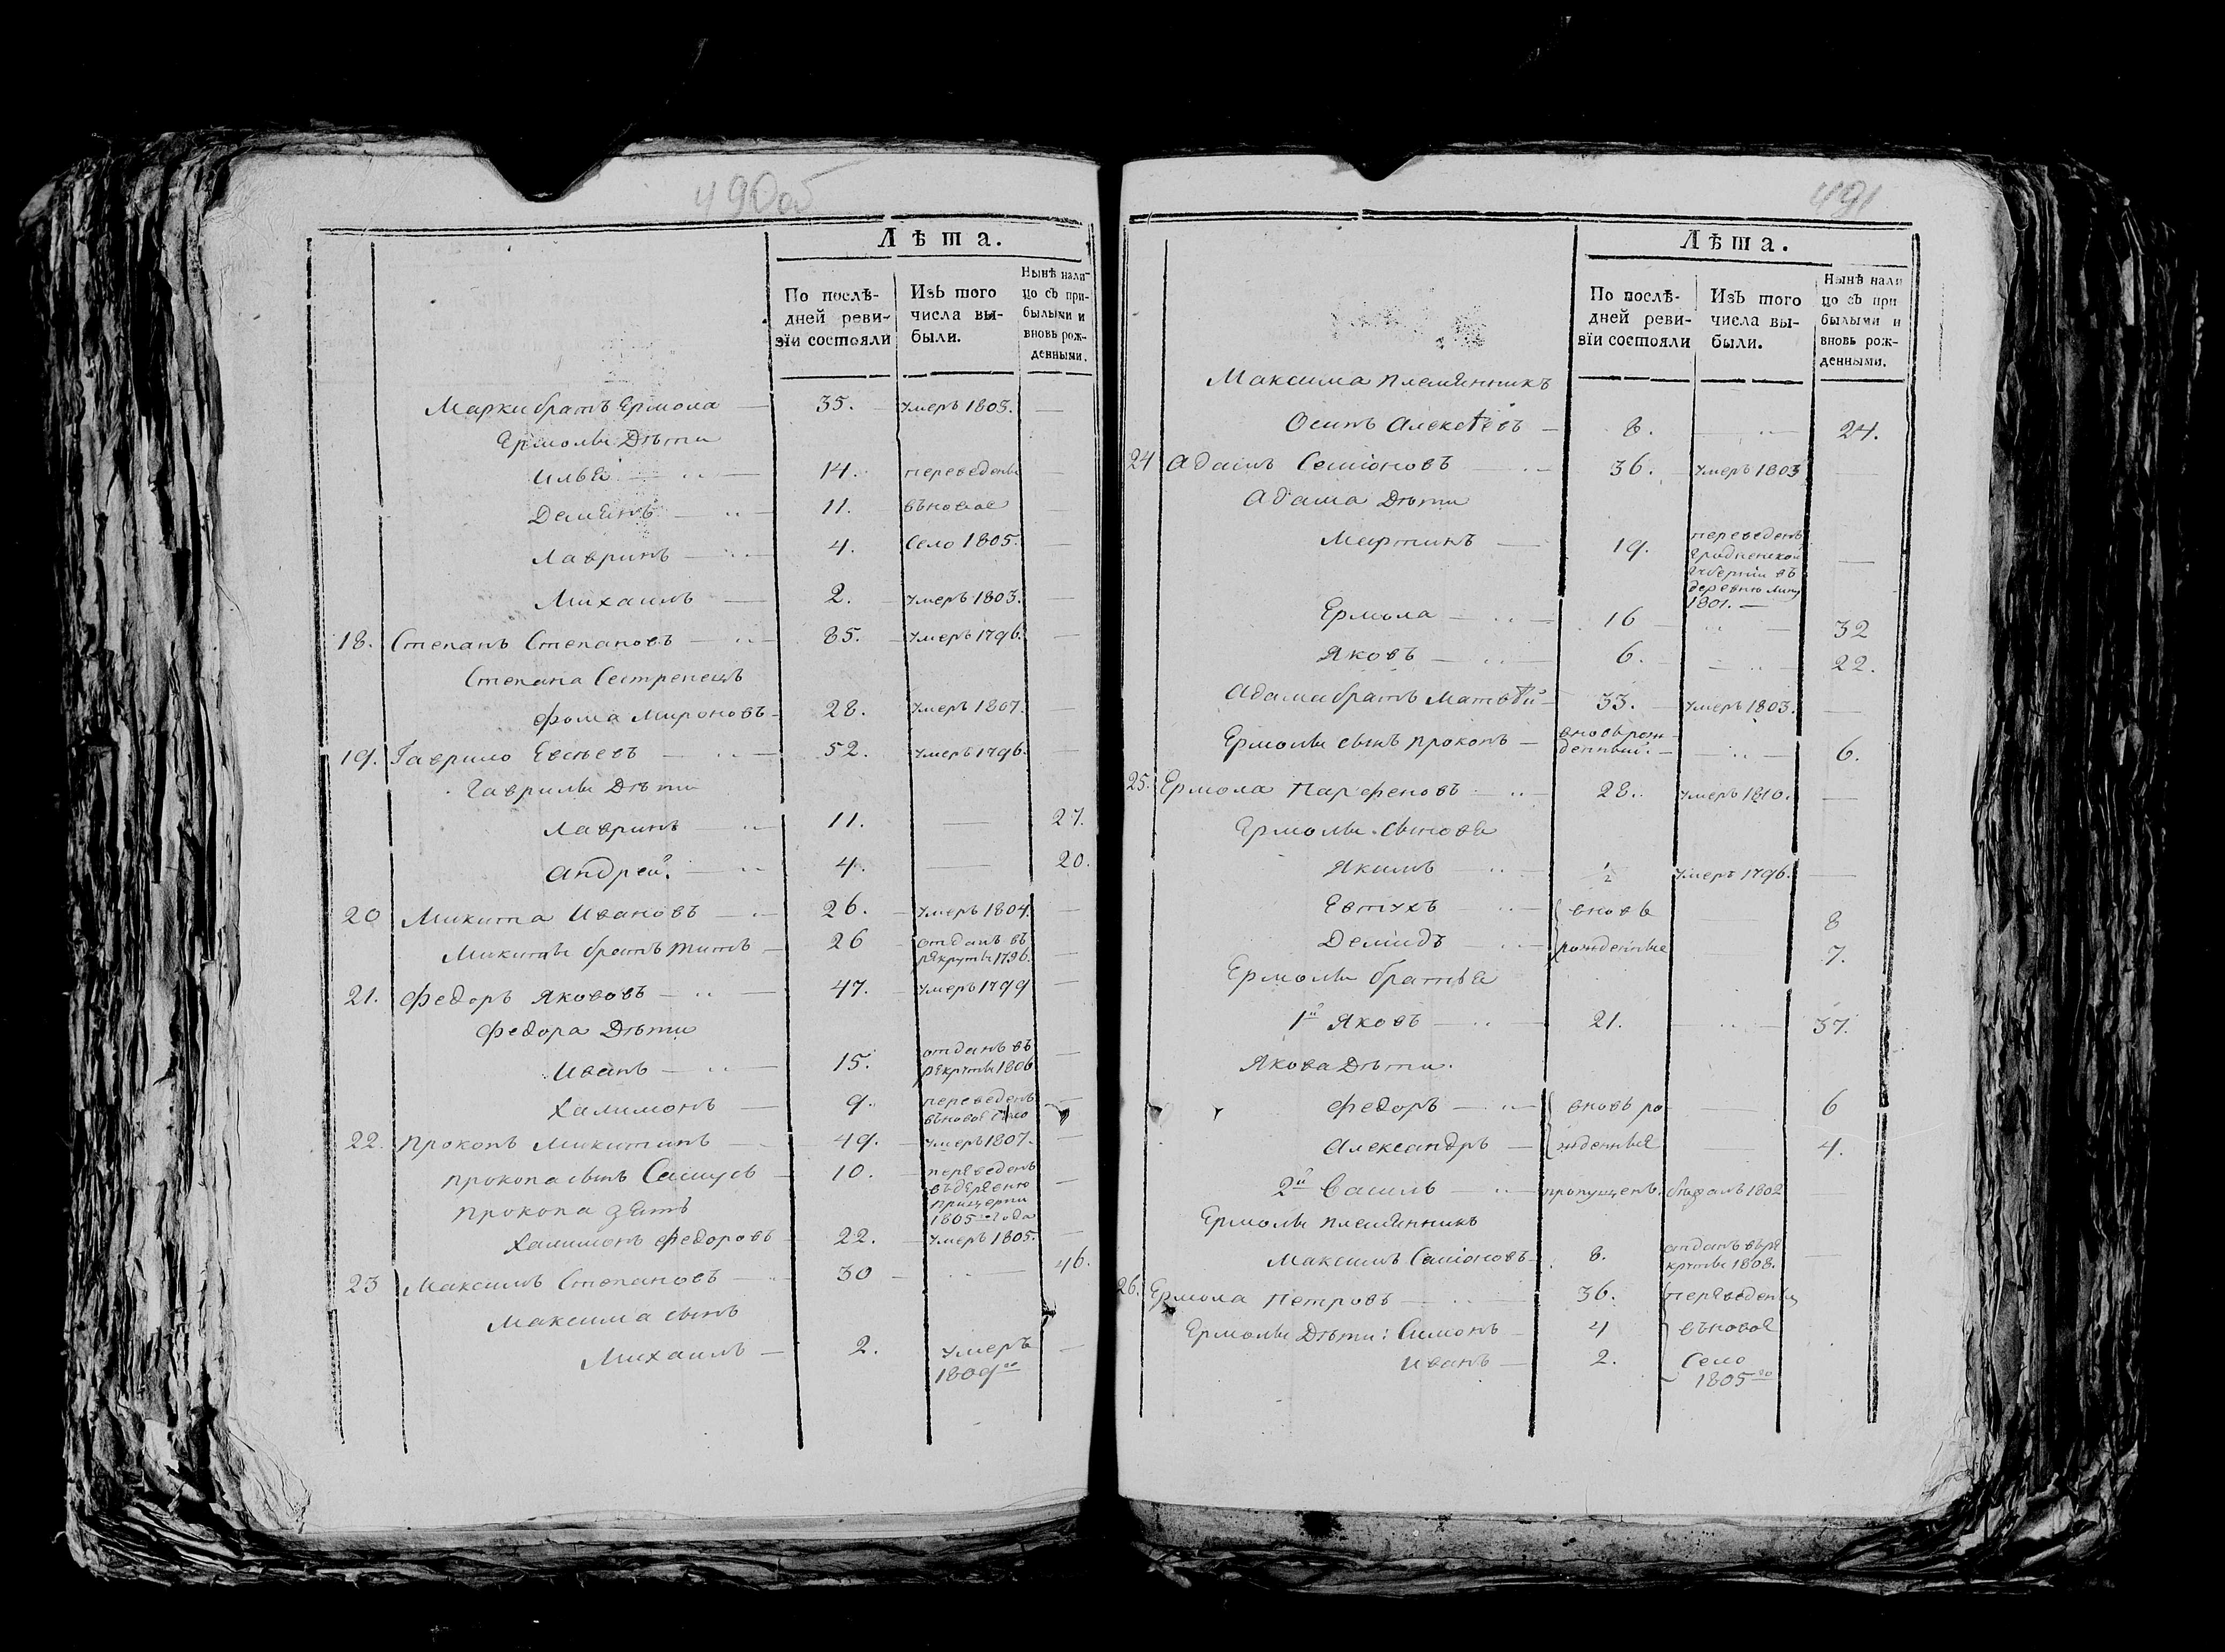 490об
Лѣта.
По послѣ-
дней реви-
зїи состояли
Изъ того
числа вы-
были.
Нынѣ нали-
цо съ при-
былыми и
вновь рож-
денными.
Марки братъ Ермола — 35. умеръ 1803. —
Ермолы Дѣти
Илья — 14. переведены —
Демянъ — 11. въновое —
Лавринъ — 4. Село 1805. —
Михаилъ — 2. умеръ 1803. —
18. Степанъ Степановъ — 85. умеръ 1796. —
Степана Сестренецъ
Фома Мироновъ — 28. умеръ 1807. —
19. Гаврило Евсѣевъ — 52. умеръ 1796. —
Гаврилы Дѣти
Лавринъ — 11. — 27.
Андрей — 4. — 20.
20 Микита Ивановъ — 26. умеръ 1804. —
Микиты братъ Титъ — 26 отданъ въ
рекруты 1796. —
21. Федоръ Якововъ — 47. умеръ 1799 —
Федора Дѣти
Иванъ — 15. отданъ въ
рекруты 1806 —
Халимонъ — 9. переведенъ
въновое Село —
22. Прокопъ Микитинъ — 49. умеръ 1807. —
Прокопа сынъ Самусь — 10. переведенъ
въдеревню
Прищепы
1805го года —
Прокопа зять
Халимонъ Федоровъ — 22. умеръ 1805. —
23 Максимъ Степановъ — 30 — 46.
Максима сынъ
Михаилъ — 2. умеръ
1809го —
491
Лѣта.
По послѣ-
дней реви-
зїи состояли
Изъ того
числа вы-
были.
Нынѣ нали
цо съ при
былыми и
вновь рож-
денными.
Максима племянникъ
Осипъ Алексѣевъ — 8. — 24.
24 Адамъ Семіоновъ — 36. умеръ 1803 —
Адама Дѣти
Мартинъ — 19. переведенъ
Гродненской
губерніи въ
деревню
1801. — —
Ермола — 16 — 32
Яковъ — 6. — 22.
Адама братъ Матвѣй — 33. умеръ 1803. —
Ермолы сынъ Прокопъ — вновь рож-
денный. — — 6.
25. Ермола Парфеновъ — 28. умеръ 1810. —
Ермолы Сынове
Якимъ — 1/2 умеръ 1796. —
Евтухъ — вновь — 8
Демидъ — рожденные — 7.
Ермолы братья
1й Яковъ — 21. — 37.
Якова Дѣти.
Федоръ — вновь ро- 6
Александръ — жденные — 4.
2й Василь — пропущенъ. бѣжалъ 1802 —
Ермолы племянникъ
Максимъ Семіоновъ — 8. отданъ въ ре
круты 1808. —
26. Ермола Петровъ — 36. переведены
Ермолы Дѣти: Симонъ — 4 въновое
Иванъ — 2. Село
1805го